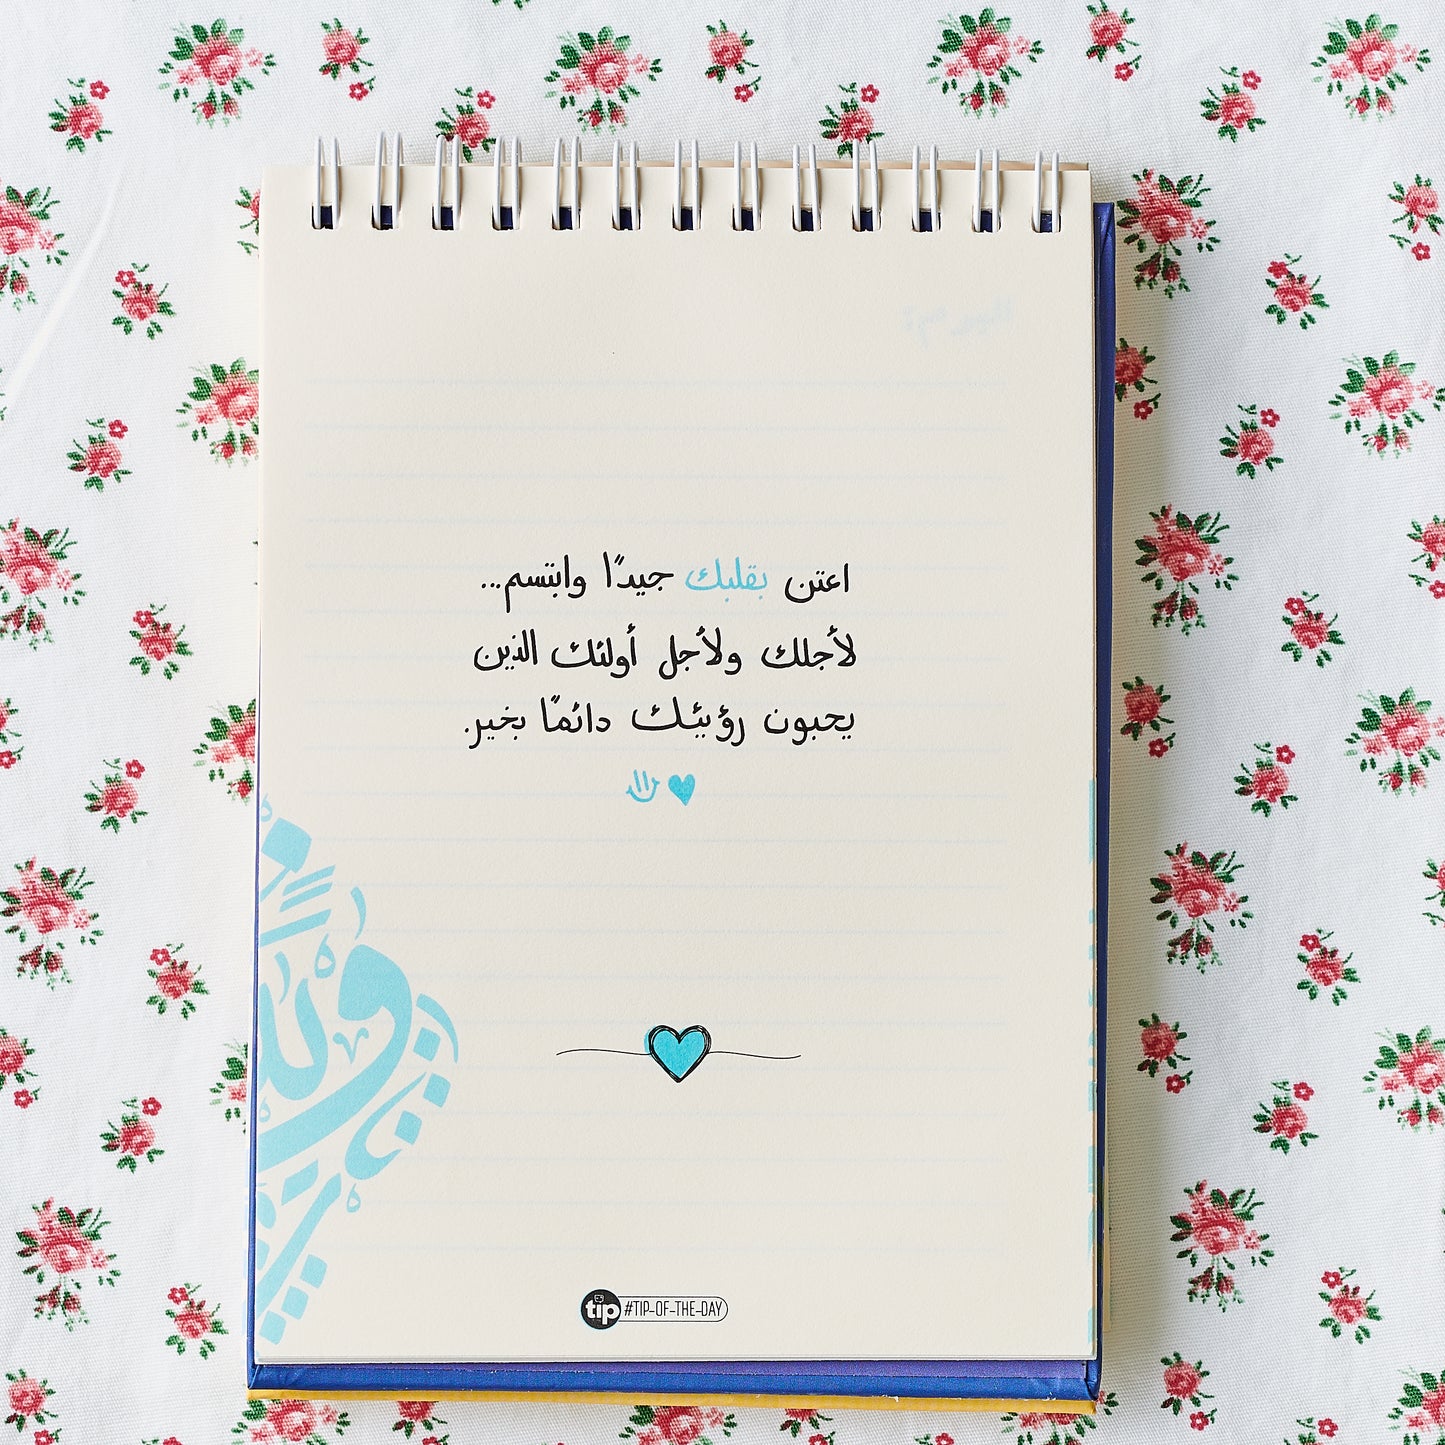 اعتن بقلبك جيدًا وابتسم...
لأجلك ولأجل أولئك الذين
يحبون رؤيتك دائمًا بخير.
tip #TIP-OF-THE-DAY